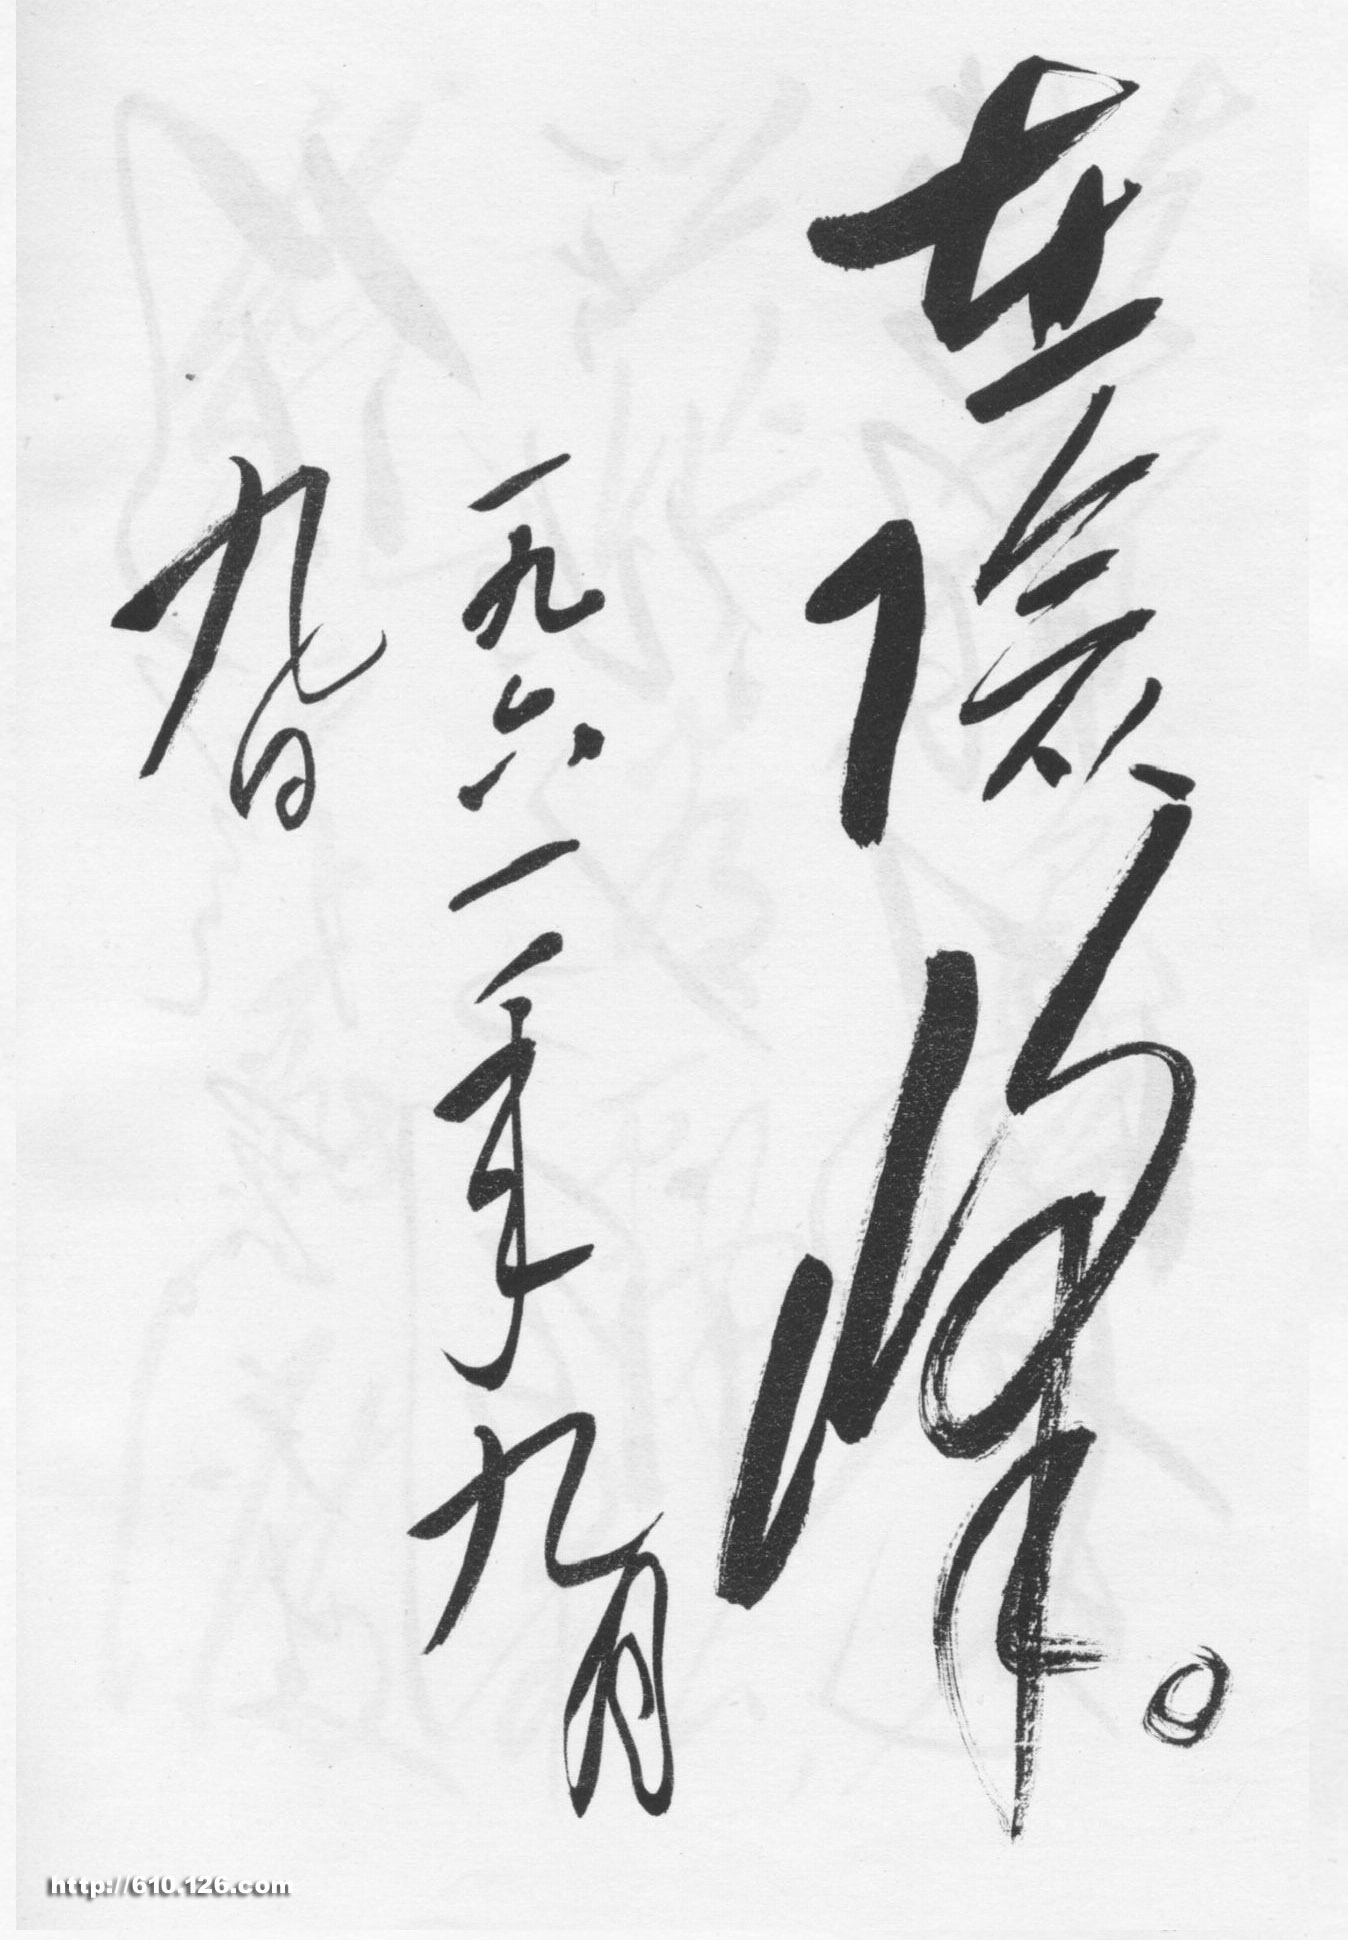 在险峰。
一九六一年九月
九日
http://610.126.com